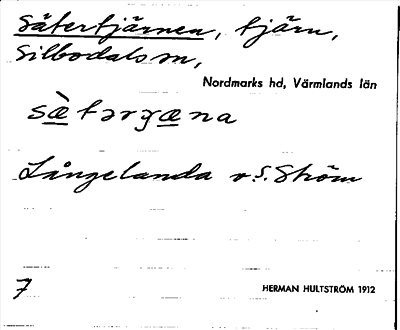 Sätertjärnen, tjärn,
Silbodals sn,
Nordmarks hd, Värmlands län
sæ̀tərɟæna
Långelanda v. S. Ström
7
HERMAN HULTSTRÖM 1912